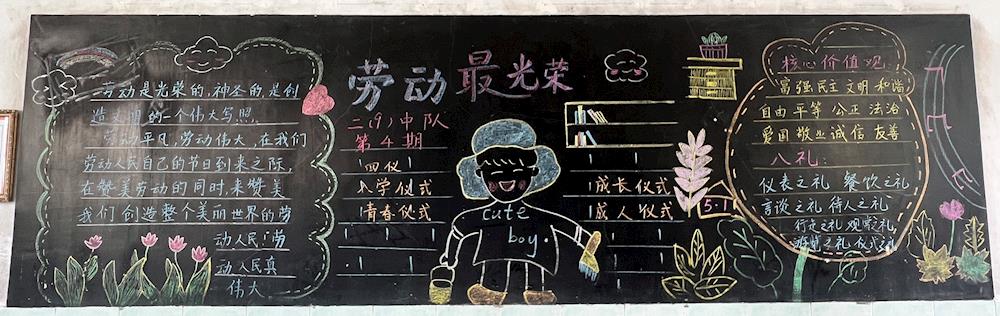 劳动是光荣的,神圣的,是创
造文明的一个伟大写照.
劳动平凡,劳动伟大,在我们
劳动人民自己的节日到来之际,
在赞美劳动的同时,来赞美
我们创造整个美丽世界的劳
动人民!劳
动人民真
伟大
劳动最光荣
二(9)中队
第4期
四仪
入学仪式
青春仪式
成长仪式
成人仪式
cute
boy.
5.1
核心价值观:
富强民主文明和谐
自由平等公正法治
爱国敬业诚信友善
八礼:
仪表之礼 餐饮之礼
言谈之礼 待人之礼
行走之礼 观赏之礼
游览之礼 仪式之礼